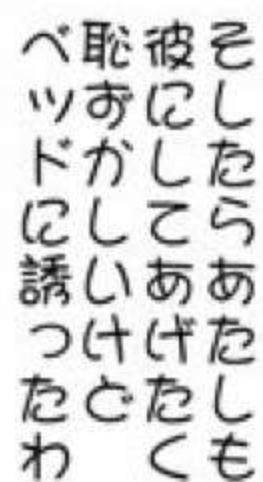 そしたらあたしも
彼にしてあげたく
恥おかしいけど
ベツドに誘ったわ